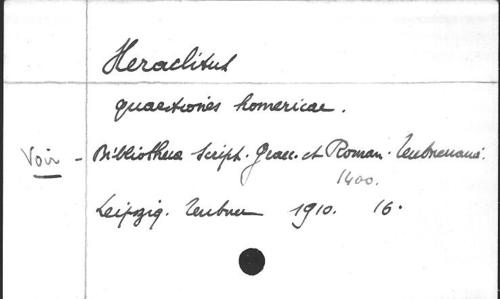 Heraclitus
quaestiones homericae.
Voir - Bibliotheca Script. Graec. et Roman. Teubneriana.
1400.
Leipzig. Teubner 1910. 16°